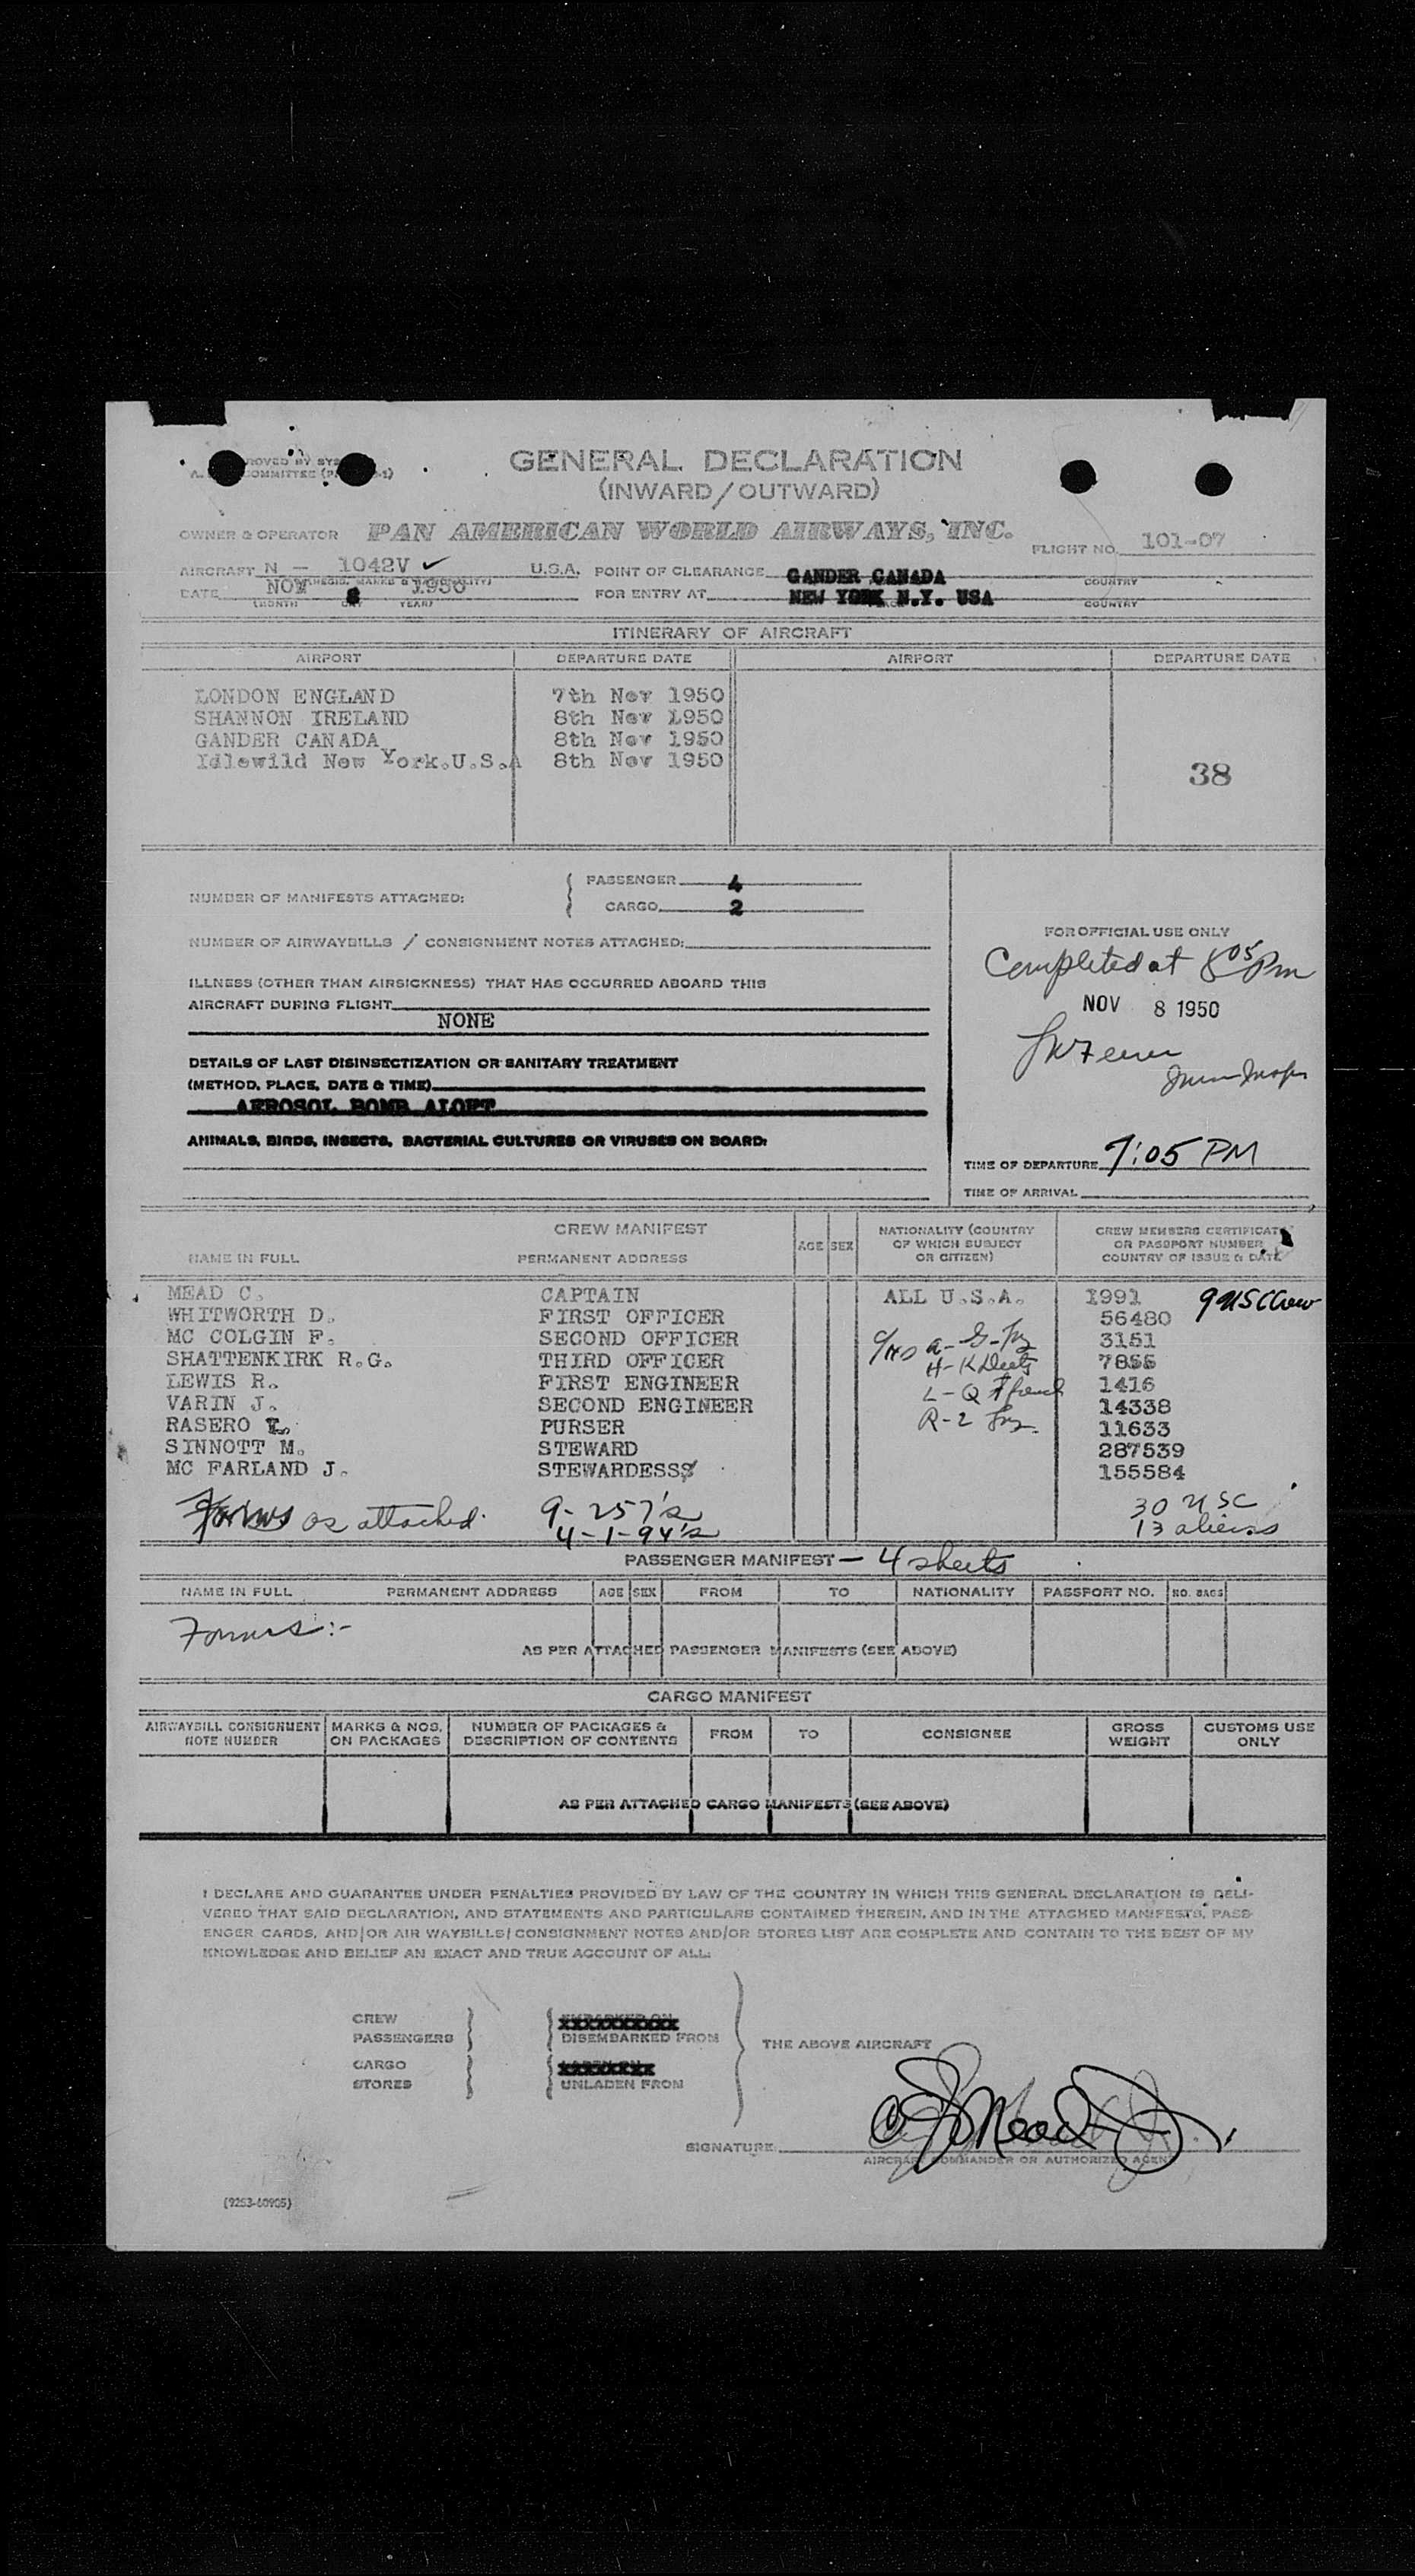 GENERAL DECLARATION
(INWARD/OUTWARD)
OWNER & OPERATOR PAN AMERICAN WORLD AIRWAYS, INC.
FLIGHT NO. 101-07
AIRCRAFT N - 1042V ✓ U.S.A. POINT OF CLEARANCE GANDER CANADA COUNTRY
DATE NOV 8 1950 FOR ENTRY AT NEW YORK N.Y. USA COUNTRY
(MONTH DAY YEAR)
ITINERARY OF AIRCRAFT
AIRPORT DEPARTURE DATE AIRPORT DEPARTURE DATE
LONDON ENGLAND 7th Nov 1950
SHANNON IRELAND 8th Nov 1950
GANDER CANADA 8th Nov 1950
Idlewild New York.U.S.A 8th Nov 1950
38
NUMBER OF MANIFESTS ATTACHED:
PASSENGER 4
CARGO 2
NUMBER OF AIRWAYBILLS / CONSIGNMENT NOTES ATTACHED:
ILLNESS (OTHER THAN AIRSICKNESS) THAT HAS OCCURRED ABOARD THIS
AIRCRAFT DURING FLIGHT
NONE
DETAILS OF LAST DISINSECTIZATION OR SANITARY TREATMENT
(METHOD, PLACE, DATE & TIME)
AEROSOL BOMB ALOFT
ANIMALS, BIRDS, INSECTS, BACTERIAL CULTURES OR VIRUSES ON BOARD:
FOR OFFICIAL USE ONLY
Completed at 8 05 Pm
NOV 8 1950
TIME OF DEPARTURE 7:05 PM
TIME OF ARRIVAL
CREW MANIFEST
NAME IN FULL PERMANENT ADDRESS AGE SEX NATIONALITY (COUNTRY OF WHICH SUBJECT OR CITIZEN) CREW MEMBERS CERTIFICATE OR PASSPORT NUMBER COUNTRY OF ISSUE & DATE
MEAD C. CAPTAIN ALL U.S.A. 1991 9 USC Crew
WHITWORTH D. FIRST OFFICER 56480
MC COLGIN F. SECOND OFFICER 3151
SHATTENKIRK R.G. THIRD OFFICER 7855
LEWIS R. FIRST ENGINEER 1416
VARIN J. SECOND ENGINEER 14338
RASERO L. PURSER 11633
SINNOTT M. STEWARD 287539
MC FARLAND J. STEWARDESS 155584
H-K
L-Q
Forms as attached. 9-257's
4-1-94's
30 USC
13 aliens
PASSENGER MANIFEST — 4 sheets
NAME IN FULL PERMANENT ADDRESS AGE SEX FROM TO NATIONALITY PASSPORT NO. NO. BAGS
Forms:-
AS PER ATTACHED PASSENGER MANIFESTS (SEE ABOVE)
CARGO MANIFEST
AIRWAYBILL CONSIGNMENT NOTE NUMBER MARKS & NOS. ON PACKAGES NUMBER OF PACKAGES & DESCRIPTION OF CONTENTS FROM TO CONSIGNEE GROSS WEIGHT CUSTOMS USE ONLY
AS PER ATTACHED CARGO MANIFESTS (SEE ABOVE)
I DECLARE AND GUARANTEE UNDER PENALTIES PROVIDED BY LAW OF THE COUNTRY IN WHICH THIS GENERAL DECLARATION IS DELI-
VERED THAT SAID DECLARATION, AND STATEMENTS AND PARTICULARS CONTAINED THEREIN, AND IN THE ATTACHED MANIFESTS, PASS-
ENGER CARDS, AND/OR AIR WAYBILLS/CONSIGNMENT NOTES AND/OR STORES LIST ARE COMPLETE AND CONTAIN TO THE BEST OF MY
KNOWLEDGE AND BELIEF AN EXACT AND TRUE ACCOUNT OF ALL:
CREW
PASSENGERS DISEMBARKED FROM
THE ABOVE AIRCRAFT
CARGO
STORES UNLADEN FROM
SIGNATURE
AIRCRAFT COMMANDER OR AUTHORIZED AGENT
(9253-60905)